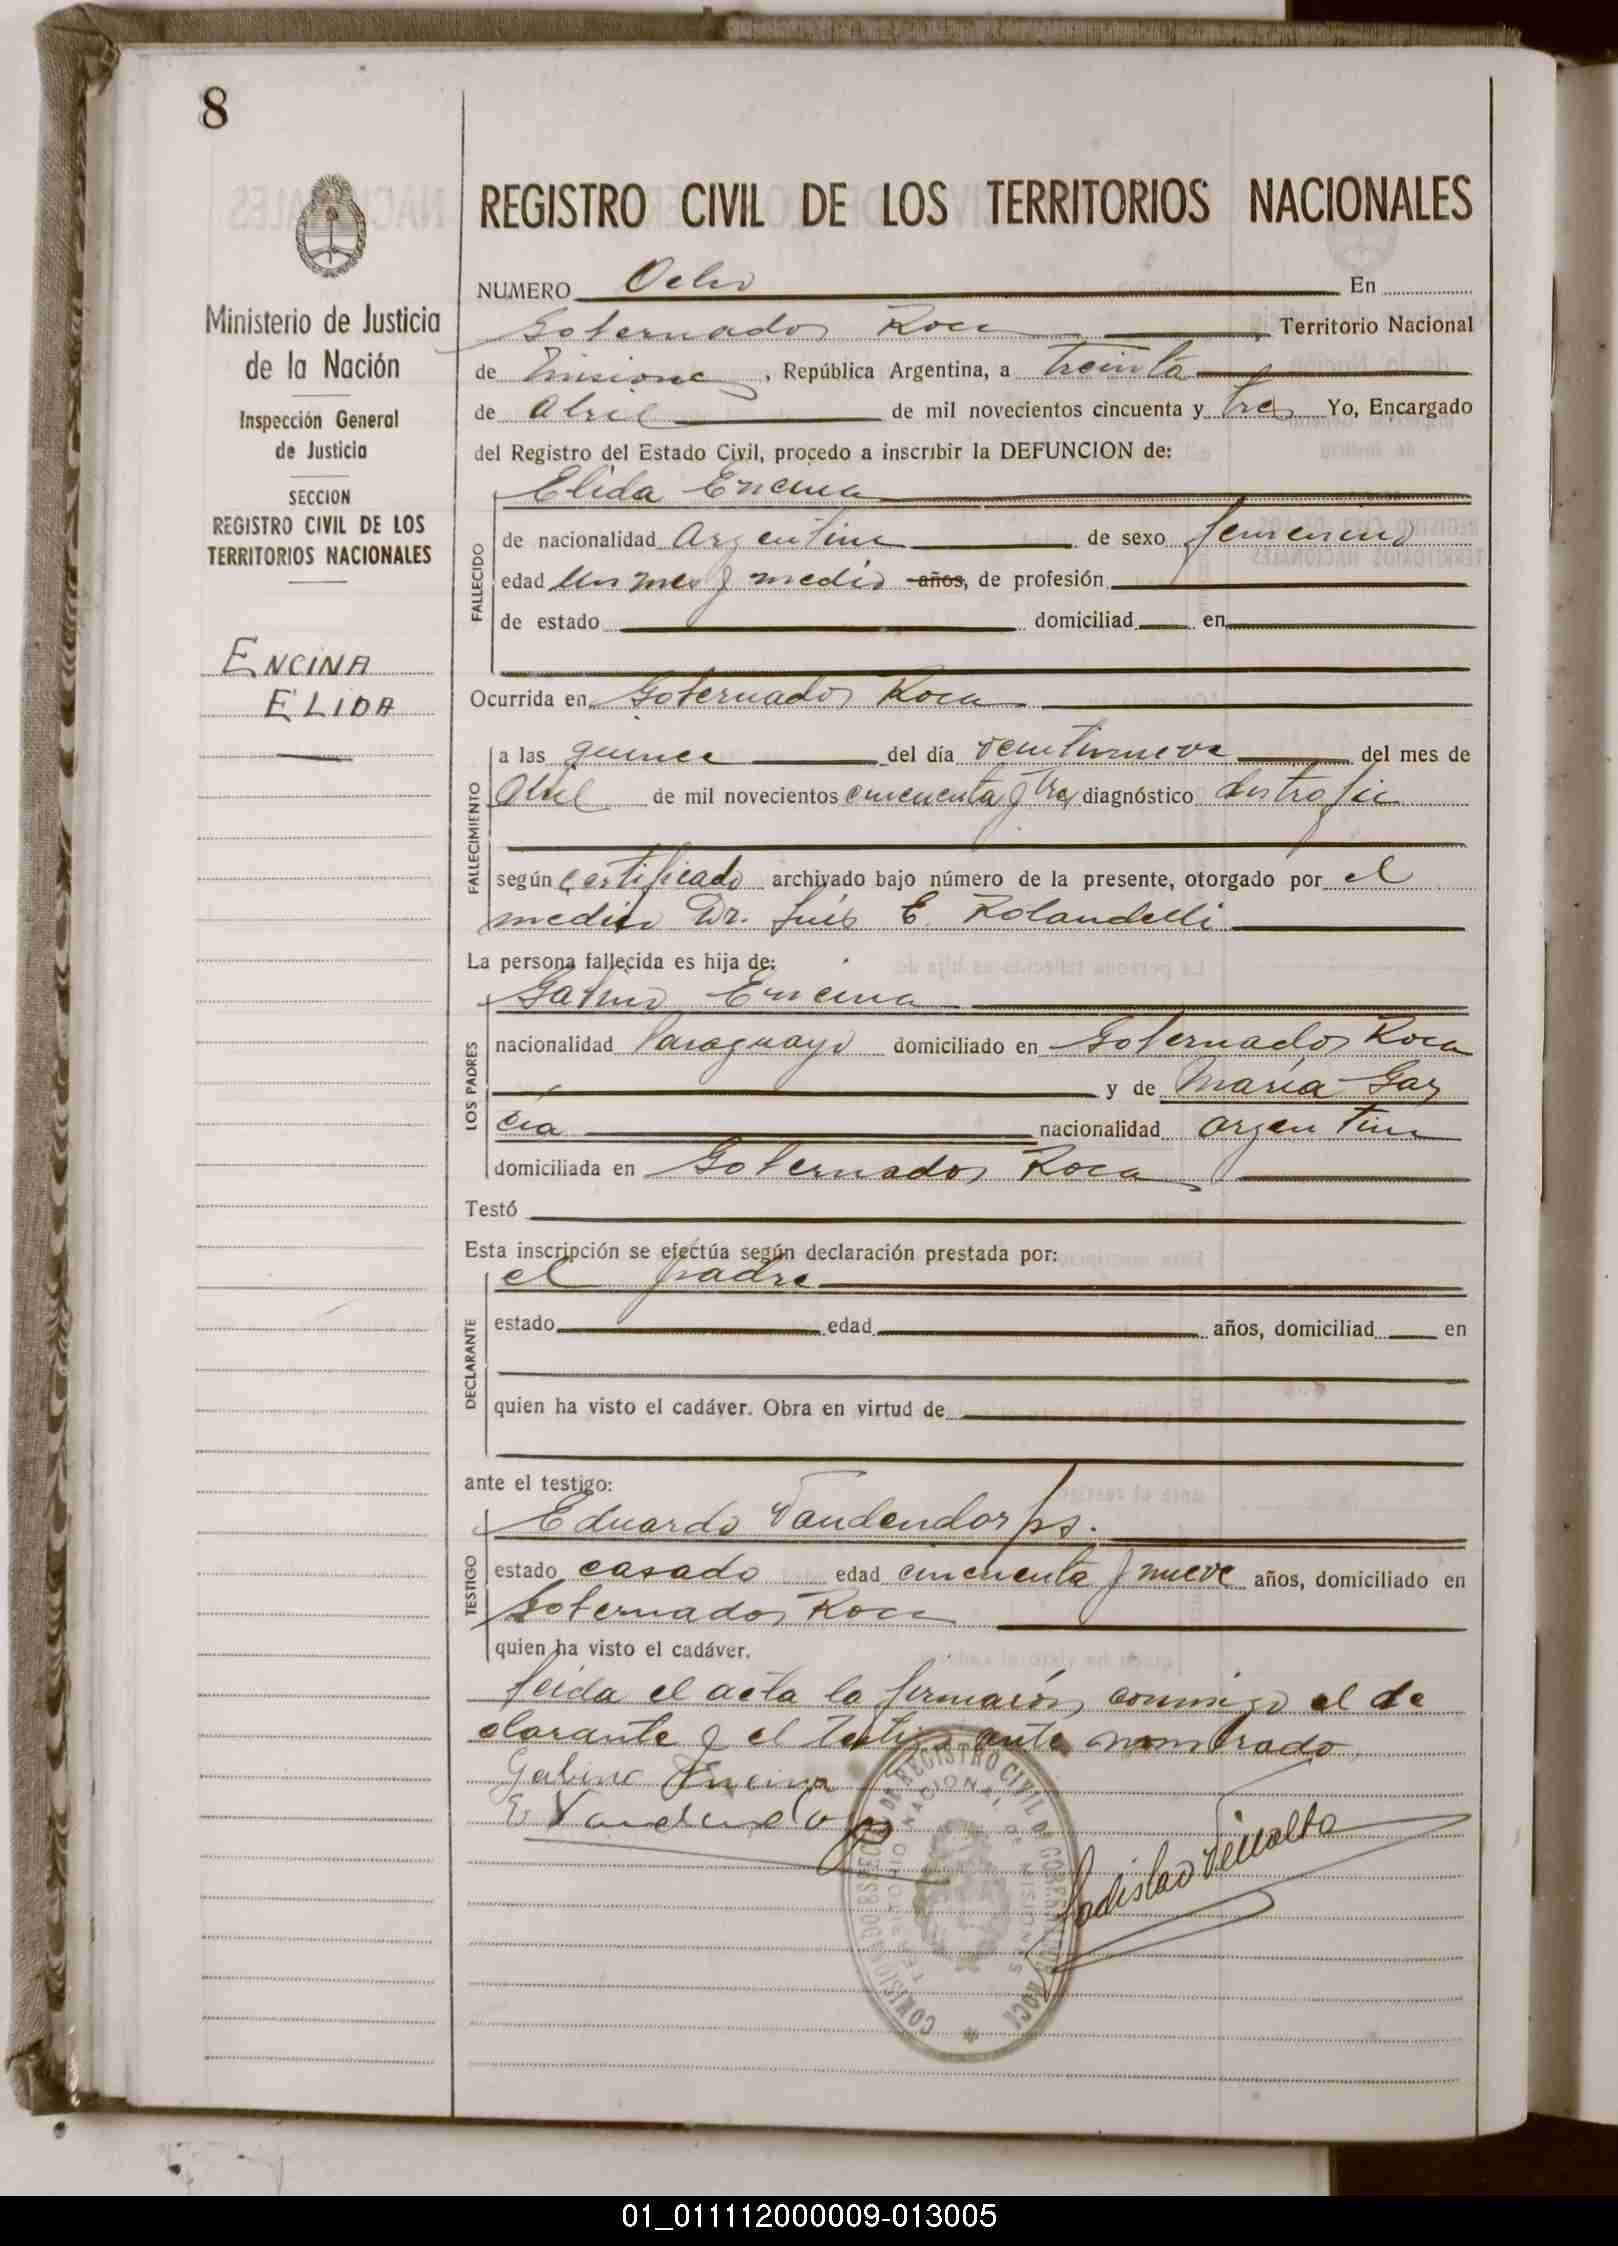 8
REGISTRO CIVIL DE LOS TERRITORIOS NACIONALES
Ministerio de Justicia
de la Nación
Inspección General
de Justicia
SECCION
REGISTRO CIVIL DE LOS
TERRITORIOS NACIONALES
ENCINA
ELIDA
NUMERO Ocho En
Gobernador Roca Territorio Nacional
de Misiones, República Argentina, a treinta
de Abril de mil novecientos cincuenta y tres Yo, Encargado
del Registro del Estado Civil, procedo a inscribir la DEFUNCION de:
Elida Encina
FALLECIDO
de nacionalidad Argentina de sexo femenino
edad un mes y medio años, de profesión
de estado domiciliad en
Ocurrida en Gobernador Roca
FALLECIMIENTO
a las quince del día veintinueve del mes de
Abril de mil novecientos cincuenta y tres diagnóstico distrofia
según certificado archivado bajo número de la presente, otorgado por el
medico Dr. Luis E. Rolandelli
La persona fallecida es hija de:
Gabino Encina
LOS PADRES
nacionalidad Paraguayo domiciliado en Gobernador Roca
y de María Gar
cía nacionalidad argentina
domiciliada en Gobernador Roca
Testó
Esta inscripción se efectúa según declaración prestada por:
el padre
DECLARANTE
estado edad años, domiciliad en
quien ha visto el cadáver. Obra en virtud de
ante el testigo:
Eduardo Vandendorps.
TESTIGO
estado casado edad cincuenta y nueve años, domiciliado en
Gobernador Roca
quien ha visto el cadáver.
Leida el acta la firmarón, conmigo el de
clarante y el testigo ante nombrado
Gabino Encina
COMISIONADO ESPECIAL DE REGISTRO CIVIL DE GOBERNADOR ROCA
TERRITORIO NACIONAL DE MISIONES
Ladislao
01_011112000009-013005